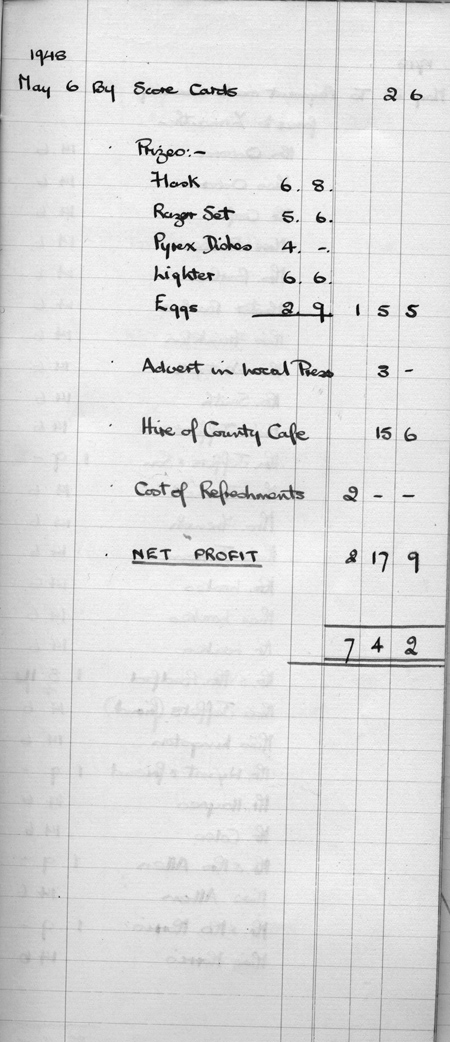 1948
May 6 By Score Cards 2 6
Prizes:-
Flask 6. 8.
Razor Set 5. 6.
Pyrex Dishes 4. -.
Lighter 6. 6.
Eggs 2. 9. 1 5 5
Advert in Local Press 3 -
Hire of County Cafe 15 6
Cost of Refreshments 2 - -
NET PROFIT 2 17 9
7 4 2